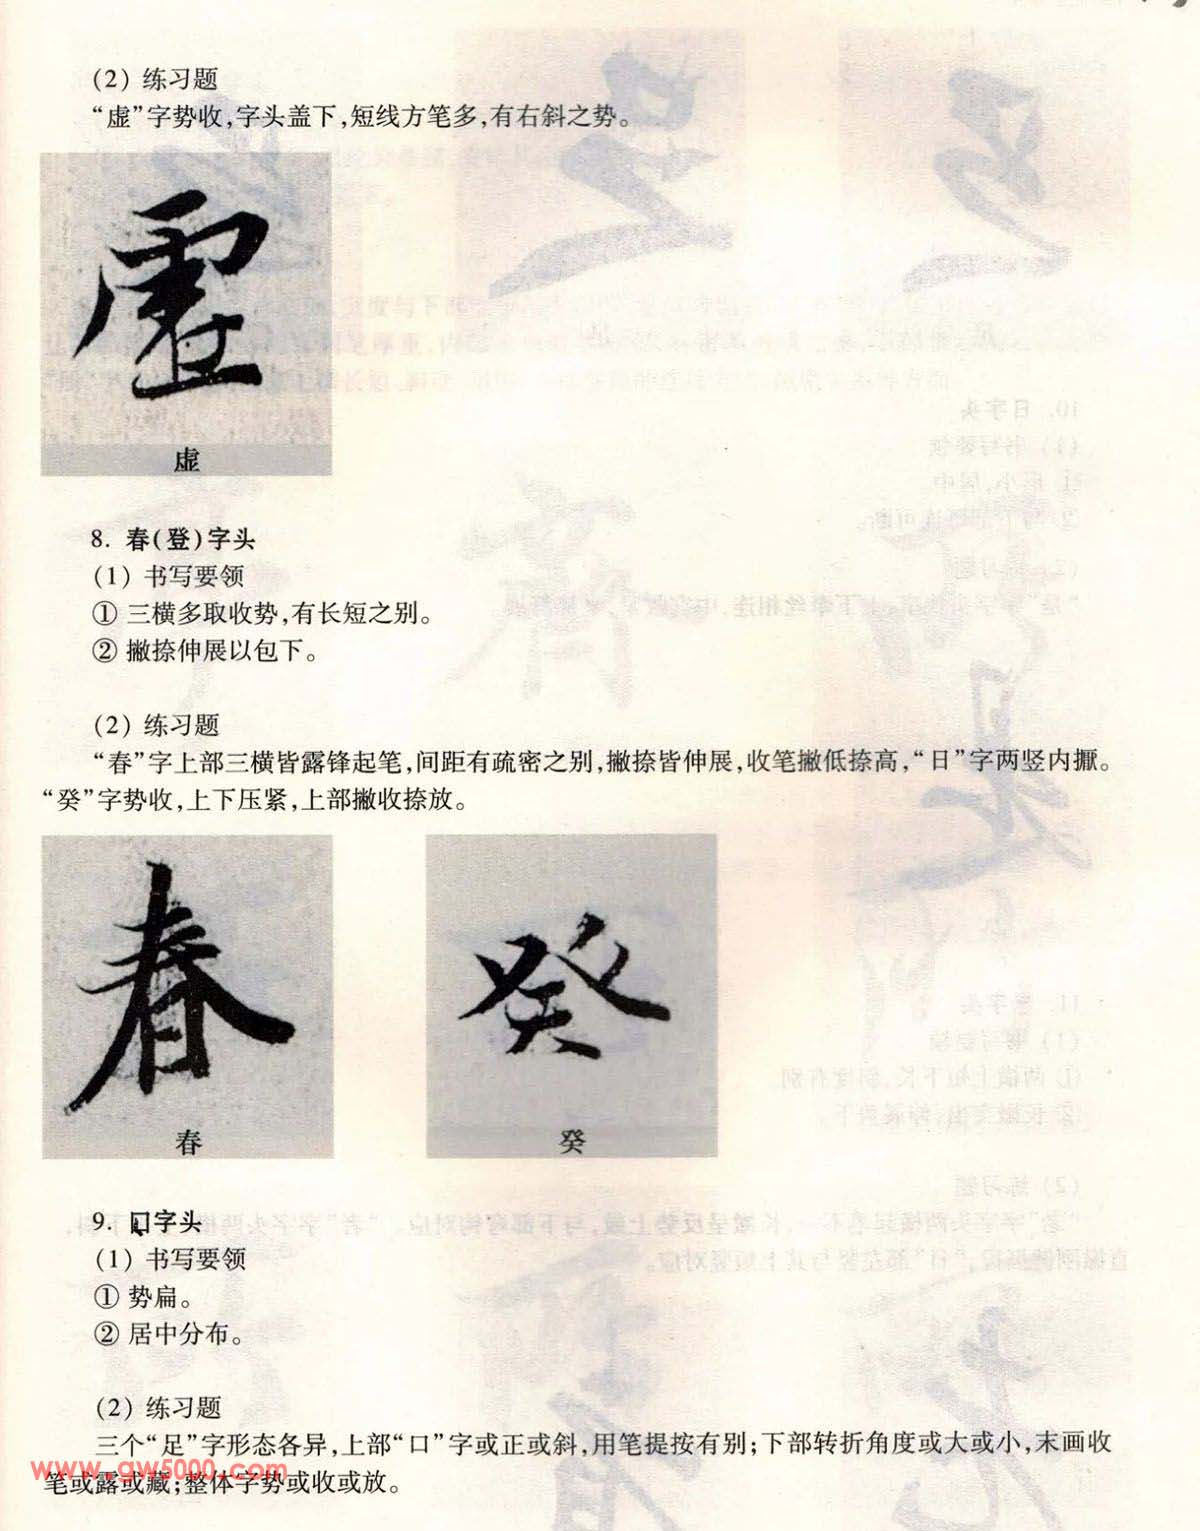 (2) 练习题
“虚”字势收,字头盖下,短线方笔多,有右斜之势。
虚
虚
8. 春(登)字头
(1) 书写要领
① 三横多取收势,有长短之别。
② 撇捺伸展以包下。
(2) 练习题
“春”字上部三横皆露锋起笔,间距有疏密之别,撇捺皆伸展,收笔撇低捺高,“日”字两竖内擫。
“癸”字势收,上下压紧,上部撇收捺放。
春
癸
春
癸
9. 口字头
(1) 书写要领
① 势扁。
② 居中分布。
(2) 练习题
三个“足”字形态各异,上部“口”字或正或斜,用笔提按有别;下部转折角度或大或小,末画收
笔或露或藏;整体字势或收或放。
www.gw5000.com